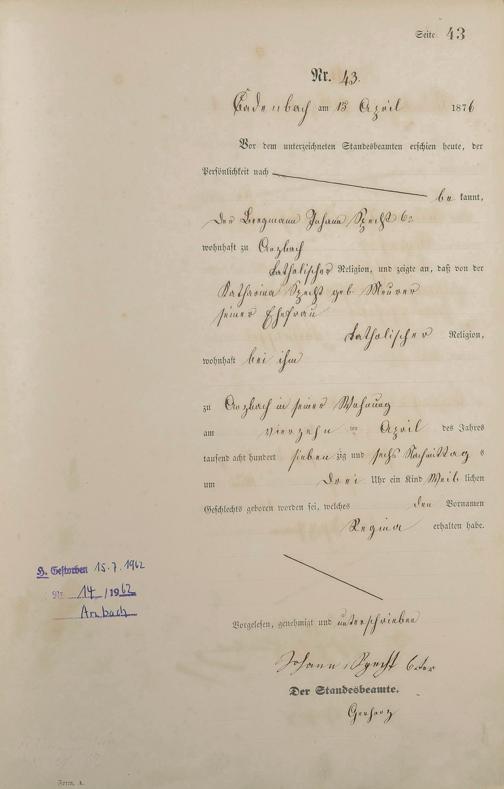 Seite 43
Nr. 43.
Cadenbach am 15 April 1876
Vor dem unterzeichneten Standesbeamten erschien heute, der
Persönlichkeit nach
be kannt,
der Bergmann Johann Specht 6r
wohnhaft zu Arzbach
katholischer Religion, und zeigte an, daß von der
Katharina Specht geb. Meurer
seiner Ehefrau
katholischer Religion,
wohnhaft bei ihm
zu Arzbach in seiner Wohnung
am vierzehn ten April des Jahres
tausend acht hundert sieben zig und sechs Nachmittag s
um drei Uhr ein Kind Weib lichen
Geschlechts geboren worden sei, welches den Vornamen
Regina erhalten habe.
H. Gestorben 15.7.1962
Nr. 14/1962
Arzbach
Vorgelesen, genehmigt und unterschrieben
Johann Specht 6ter
Der Standesbeamte.
Form. A.